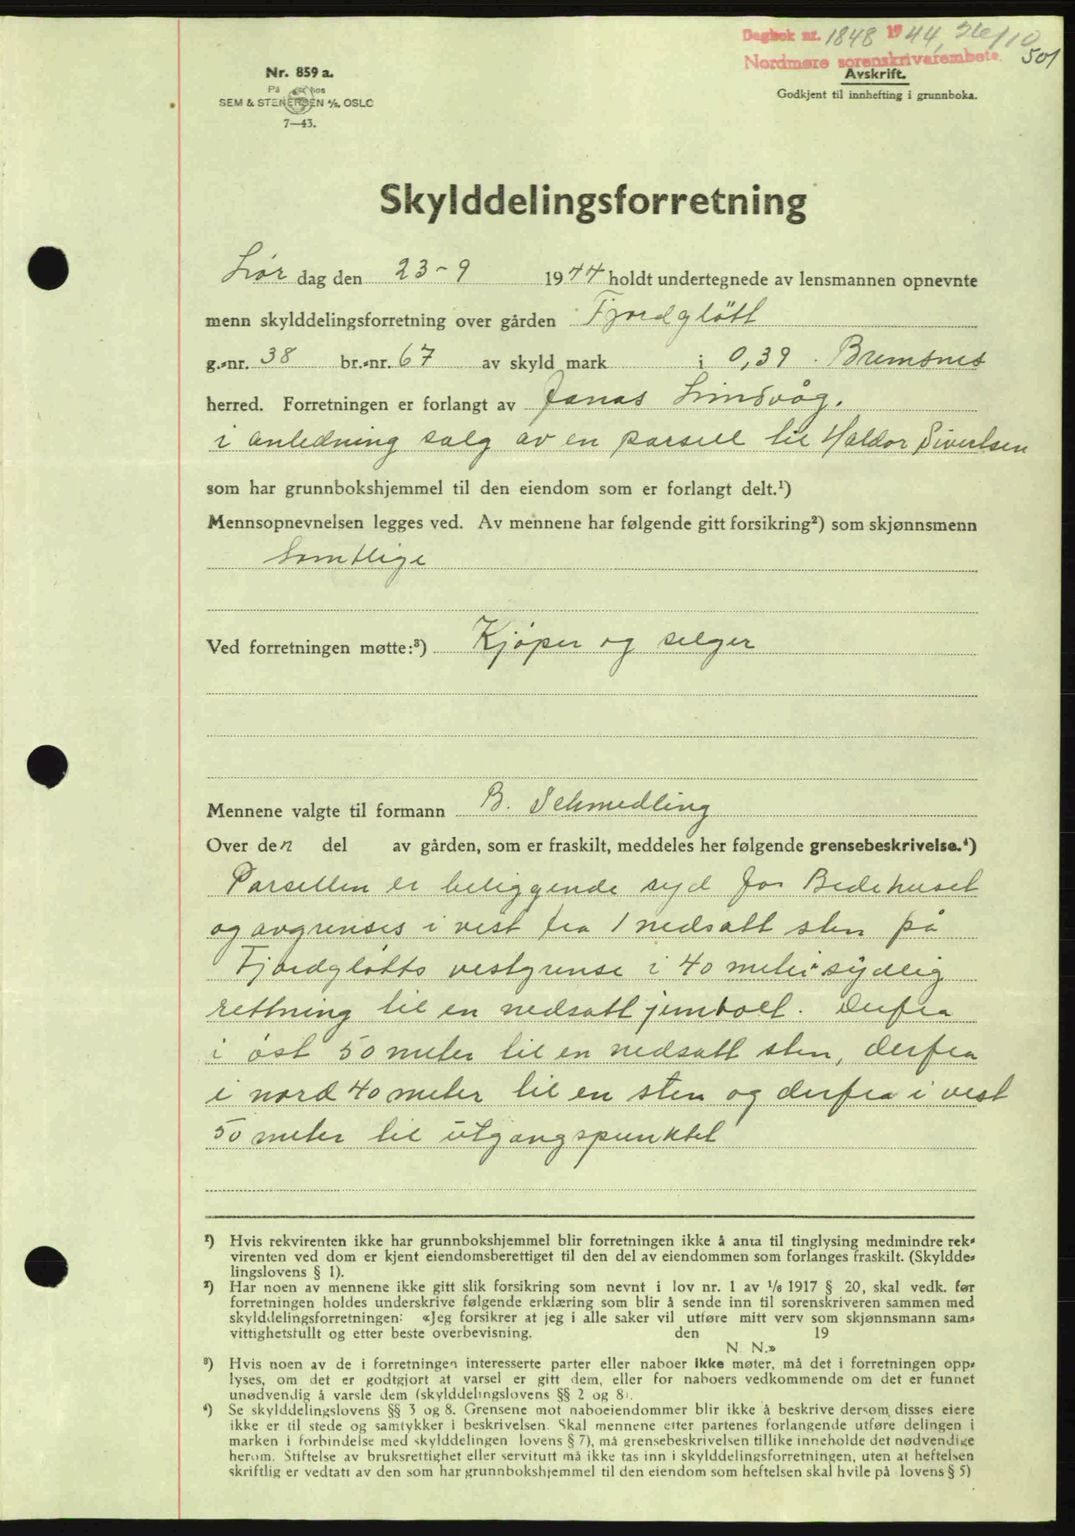 Dagbok nr. 1848 1944, 26/10
Nordmøre sorenskriverembete
501
Nr. 859 a.
Avskrift.
Godkjent til innhefting i grunnboka.
SEM & STENERSEN A/S, OSLO
7—43.
Skylddelingsforretning
Lør dag den 23-9 1944 holdt undertegnede av lensmannen opnevnte
menn skylddelingsforretning over gården Fjordgløtt
g.-nr. 38 br.-nr. 67 av skyld mark i 0,39. Bremsnes
herred. Forretningen er forlangt av Jonas Linsvåg.
i anledning salg av en parsell til Haldor Sivertsen
som har grunnbokshjemmel til den eiendom som er forlangt delt.¹)
Mennsopnevnelsen legges ved. Av mennene har følgende gitt forsikring²) som skjønnsmenn
Samtlige
Ved forretningen møtte:³) Kjøper og selger
Mennene valgte til formann B. Schmedling
Over den del av gården, som er fraskilt, meddeles her følgende grensebeskrivelse.⁴)
Parsellen er beliggende syd for Bedehuset
og avgrenses i vest fra 1 nedsatt sten på
Fjordgløtts vestgrense i 40 meter sydlig
rettning til en nedsatt jernbolt. Derfra
i øst 50 meter til en nedsatt sten, derfra
i nord 40 meter til en sten og derfra i vest
50 meter til utgangspunktet
¹) Hvis rekvirenten ikke har grunnbokshjemmel blir forretningen ikke å anta til tinglysing medmindre rek-
virenten ved dom er kjent eiendomsberettiget til den del av eiendommen som forlanges fraskilt. (Skyldde-
lingslovens § 1).
²) Har noen av mennene ikke gitt slik forsikring som nevnt i lov nr. 1 av 1/6 1917 § 20, skal vedk. før
forretningen holdes underskrive følgende erklæring som blir å sende inn til sorenskriveren sammen med
skylddelingsforretningen: «Jeg forsikrer at jeg i alle saker vil utføre mitt verv som skjønnsmann sam-
vittighetsfullt og etter beste overbevisning. den 19
N. N.»
³) Hvis noen av de i forretningen interesserte parter eller naboer ikke møter, må det i forretningen opp-
lyses, om det er godtgjort at varsel er gitt dem, eller for naboers vedkommende om det er funnet
unødvendig å varsle dem (skylddelingslovens §§ 2 og 8).
⁴) Se skylddelingslovens §§ 3 og 8. Grensene mot naboeiendommer blir ikke å beskrive dersom disses eiere
ikke er til stede og samtykker i beskrivelsen. Skal mennene etter partenes forlangende utføre delingen i
marken i forbindelse med skylddelingen lovens § 7), må grensebeskrivelsen tillike inneholde det nødvendige
herom. Stiftelse av bruksrettighet eller servitutt må ikke tas inn i skylddelingsforretningen, uten at heftelsen
skriftlig er vedtatt av den som har grunnbokshjemmel til den eiendom som heftelsen skal hvile på lovens § 5)